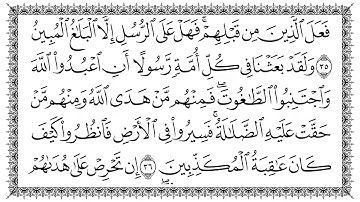 فَعَلَ ٱلَّذِينَ مِن قَبۡلِهِمۡۚ فَهَلۡ عَلَى ٱلرُّسُلِ إِلَّا ٱلۡبَلَٰغُ ٱلۡمُبِينُ
٣٥ وَلَقَدۡ بَعَثۡنَا فِي كُلِّ أُمَّةٖ رَّسُولًا أَنِ ٱعۡبُدُواْ ٱللَّهَ
وَٱجۡتَنِبُواْ ٱلطَّٰغُوتَۖ فَمِنۡهُم مَّنۡ هَدَى ٱللَّهُ وَمِنۡهُم مَّنۡ
حَقَّتۡ عَلَيۡهِ ٱلضَّلَٰلَةُۚ فَسِيرُواْ فِي ٱلۡأَرۡضِ فَٱنظُرُواْ كَيۡفَ
كَانَ عَٰقِبَةُ ٱلۡمُكَذِّبِينَ ٣٦ إِن تَحۡرِصۡ عَلَىٰ هُدَىٰهُمۡ